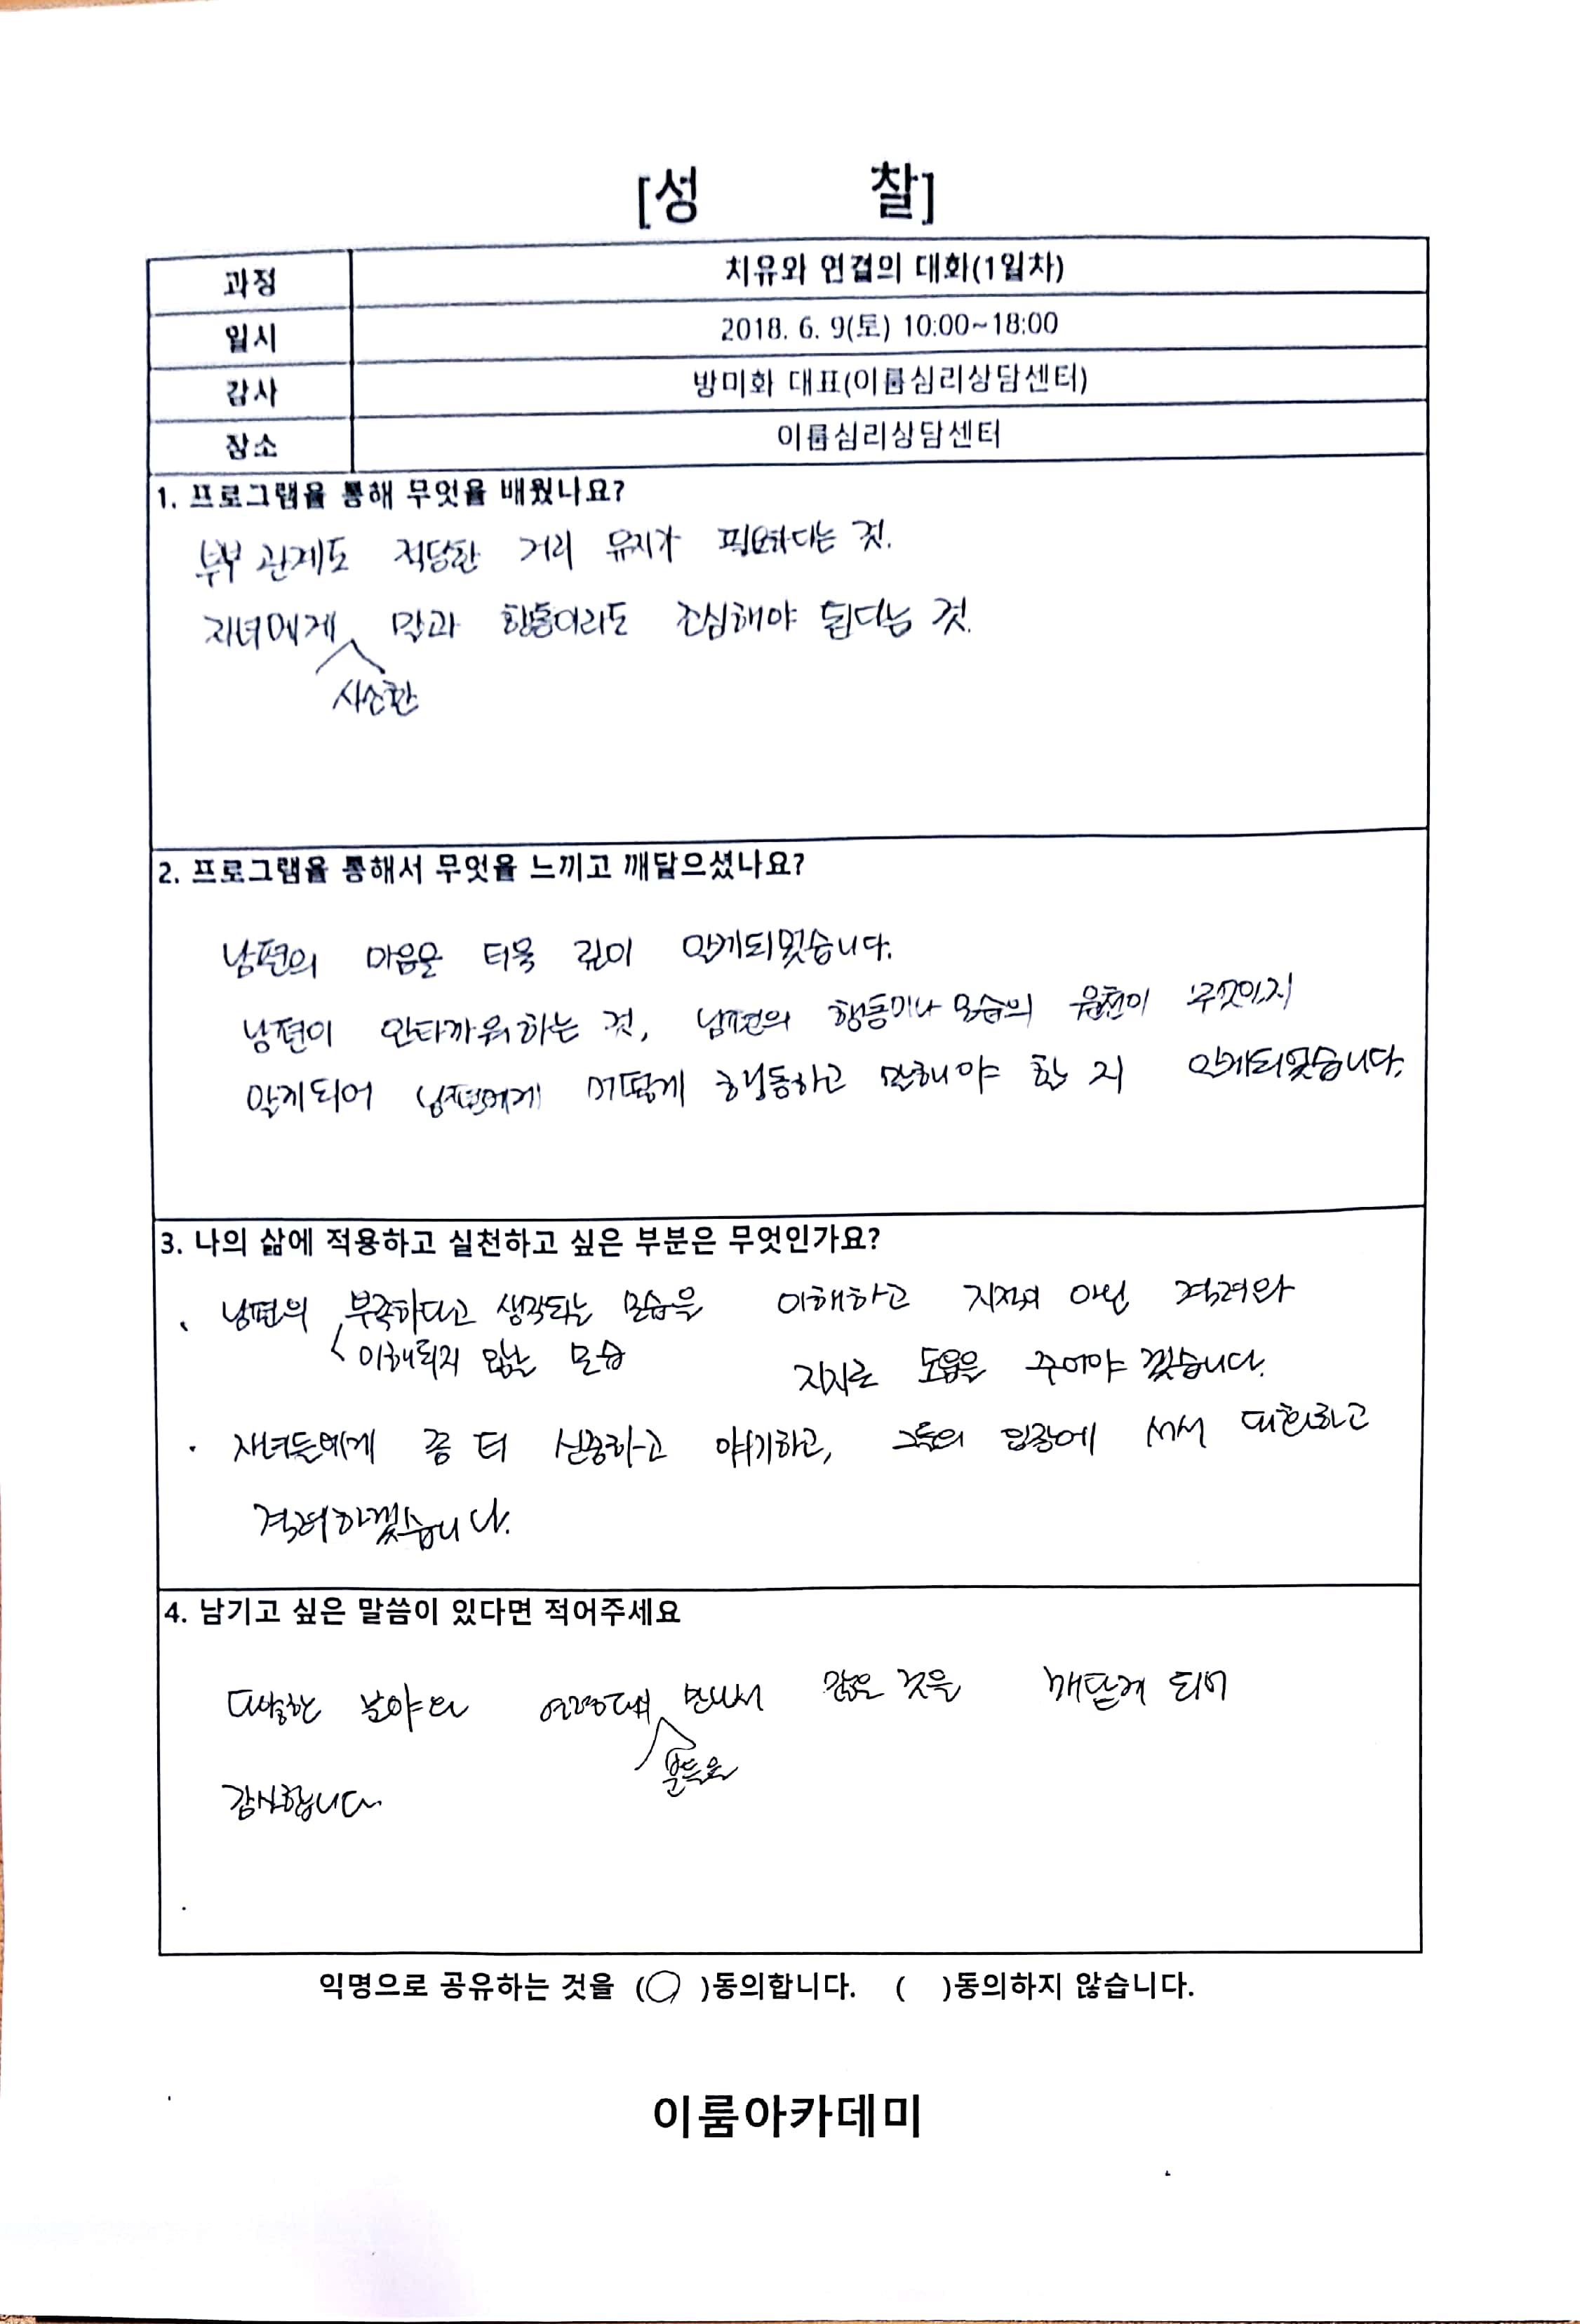 [성 찰]
과정 치유와 연결의 대화(1일차)
일시 2018. 6. 9(토) 10:00~18:00
강사 방미화 대표(이룸심리상담센터)
장소 이룸심리상담센터
1. 프로그램을 통해 무엇을 배웠나요?
부부 관계도 적당한 거리 유지가 필요하다는 것.
자녀에게 말과 행동이라도 조심해야 된다는 것.
사소한
2. 프로그램을 통해서 무엇을 느끼고 깨달으셨나요?
남편의 마음을 더욱 깊이 알게되었습니다.
남편이 안타까워하는 것, 남편의 행동이나 모습의 원천이 무엇인지
알게되어 남편에게 어떻게 행동하고 말해야 할 지 알게되었습니다.
3. 나의 삶에 적용하고 실천하고 싶은 부분은 무엇인가요?
· 남편의 부족하다고 생각되는 모습을 이해하고 지적이 아닌 격려와
< 이해되지 않는 모습 지지로 도움을 주어야 겠습니다.
· 자녀들에게 좀 더 신중하고 얘기하고, 그들의 입장에 서서 대화하고
격려하겠습니다.
4. 남기고 싶은 말씀이 있다면 적어주세요
다양한 분야와 연령대의 만나서 많은 것을 깨닫게 되어
분들을
감사합니다.
익명으로 공유하는 것을 (○)동의합니다. ( )동의하지 않습니다.
이룸아카데미